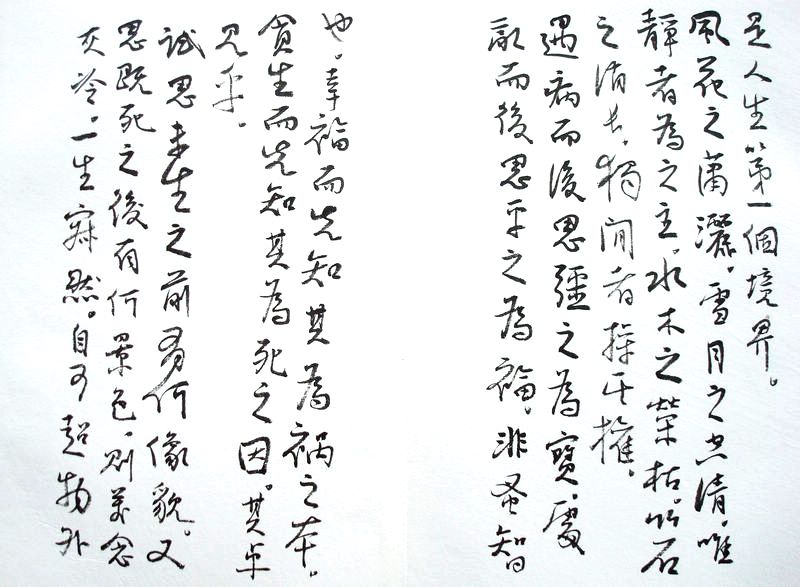 是人生第一個境界。
風花之瀟灑。雪月之空清。唯
靜者為之主。水木之榮枯。竹石
之消長。獨閒者操其權。
遇病而後思彊之為寶。處
亂而後思平之為福。非蚤智
也。幸福而先知其為禍之本。
貪生而先知其為死之因。其卓
見乎。
試思未生之前有何像貌。又
思既死之後有何景色。則萬念
灰冷。一生寂然。自可超物外